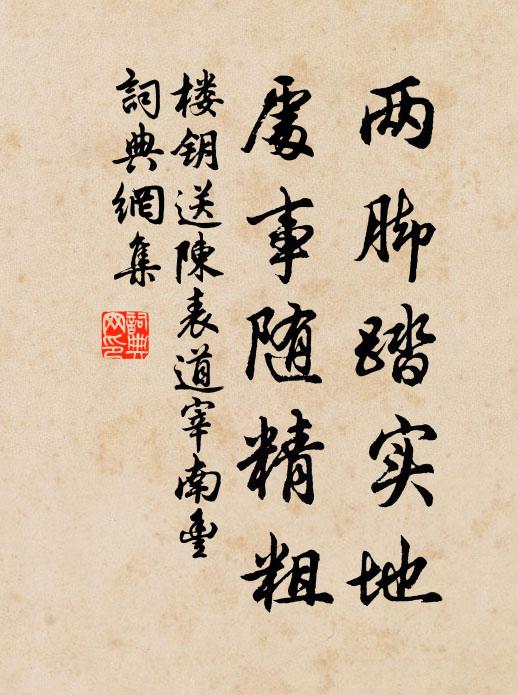 两脚踏实地
處事随精粗
楼钥送陳表道宰南豐
詞典網集
詞典
网印